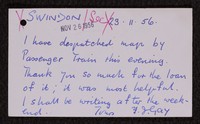 SWINDON / Soc / 23·11·56.
NOV 26 1956
I have despatched map by
Passenger Train this evening.
Thank you so much for the loan
of it; it was most helpful.
I shall be writing after the week-
end. Yours F J Gay